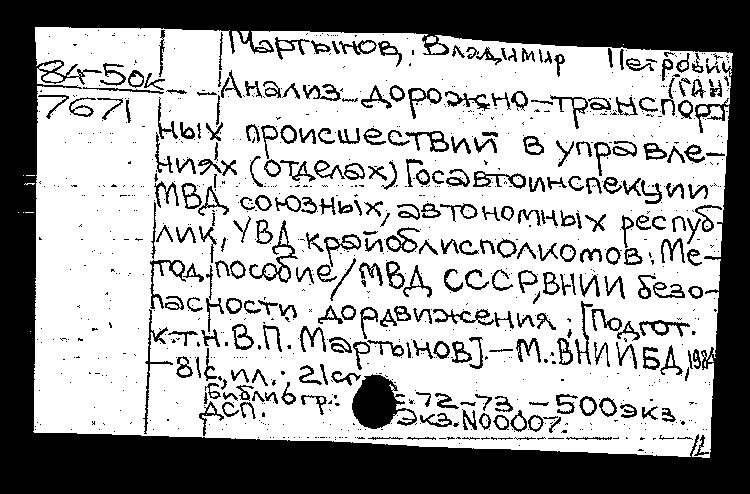 Мартынов, Владимир Петрович
84-50к (ГАИ)
7671 Анализ дорожно-транспорт
ных происшествий в управле-
ниях (отделах) Госавтоинспекции
МВД союзных, автономных респуб-
лик, УВД крайоблисполкомов: Ме-
тод. пособие/МВД СССР, ВНИИ безо-
пасности дордвижения; [Подгот.
к.т.н. В.П. Мартынов].—М.: ВНИИБД, 1984
—81с, ил.; 21см
Библиогр.: с.72-73. —500экз.
ДСП. Экз.N00007.
12